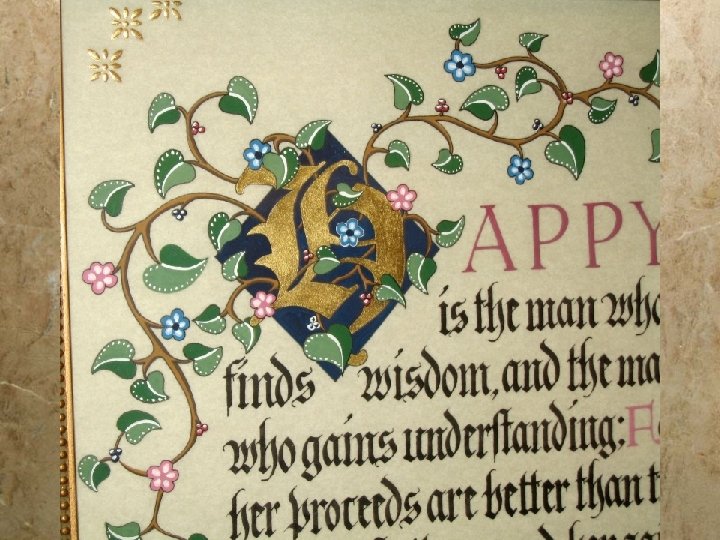 HAPPY
is the man who
finds wisdom, and the ma
who gains understanding: F
her proceeds are better than t